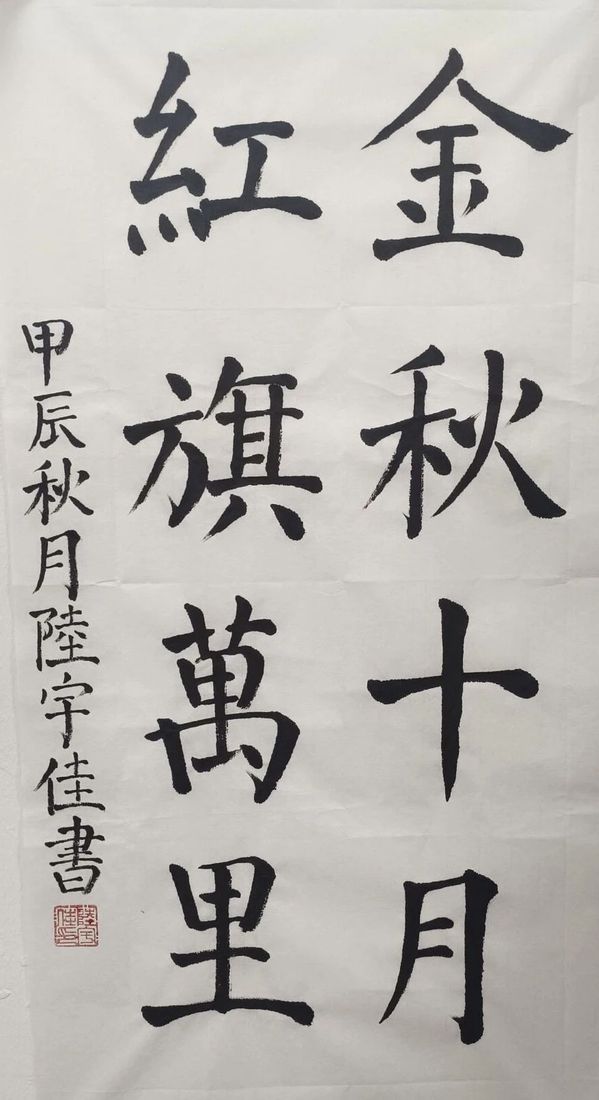 金秋十月
紅旗萬里
甲辰秋月陸宇佳書
陸宇佳印